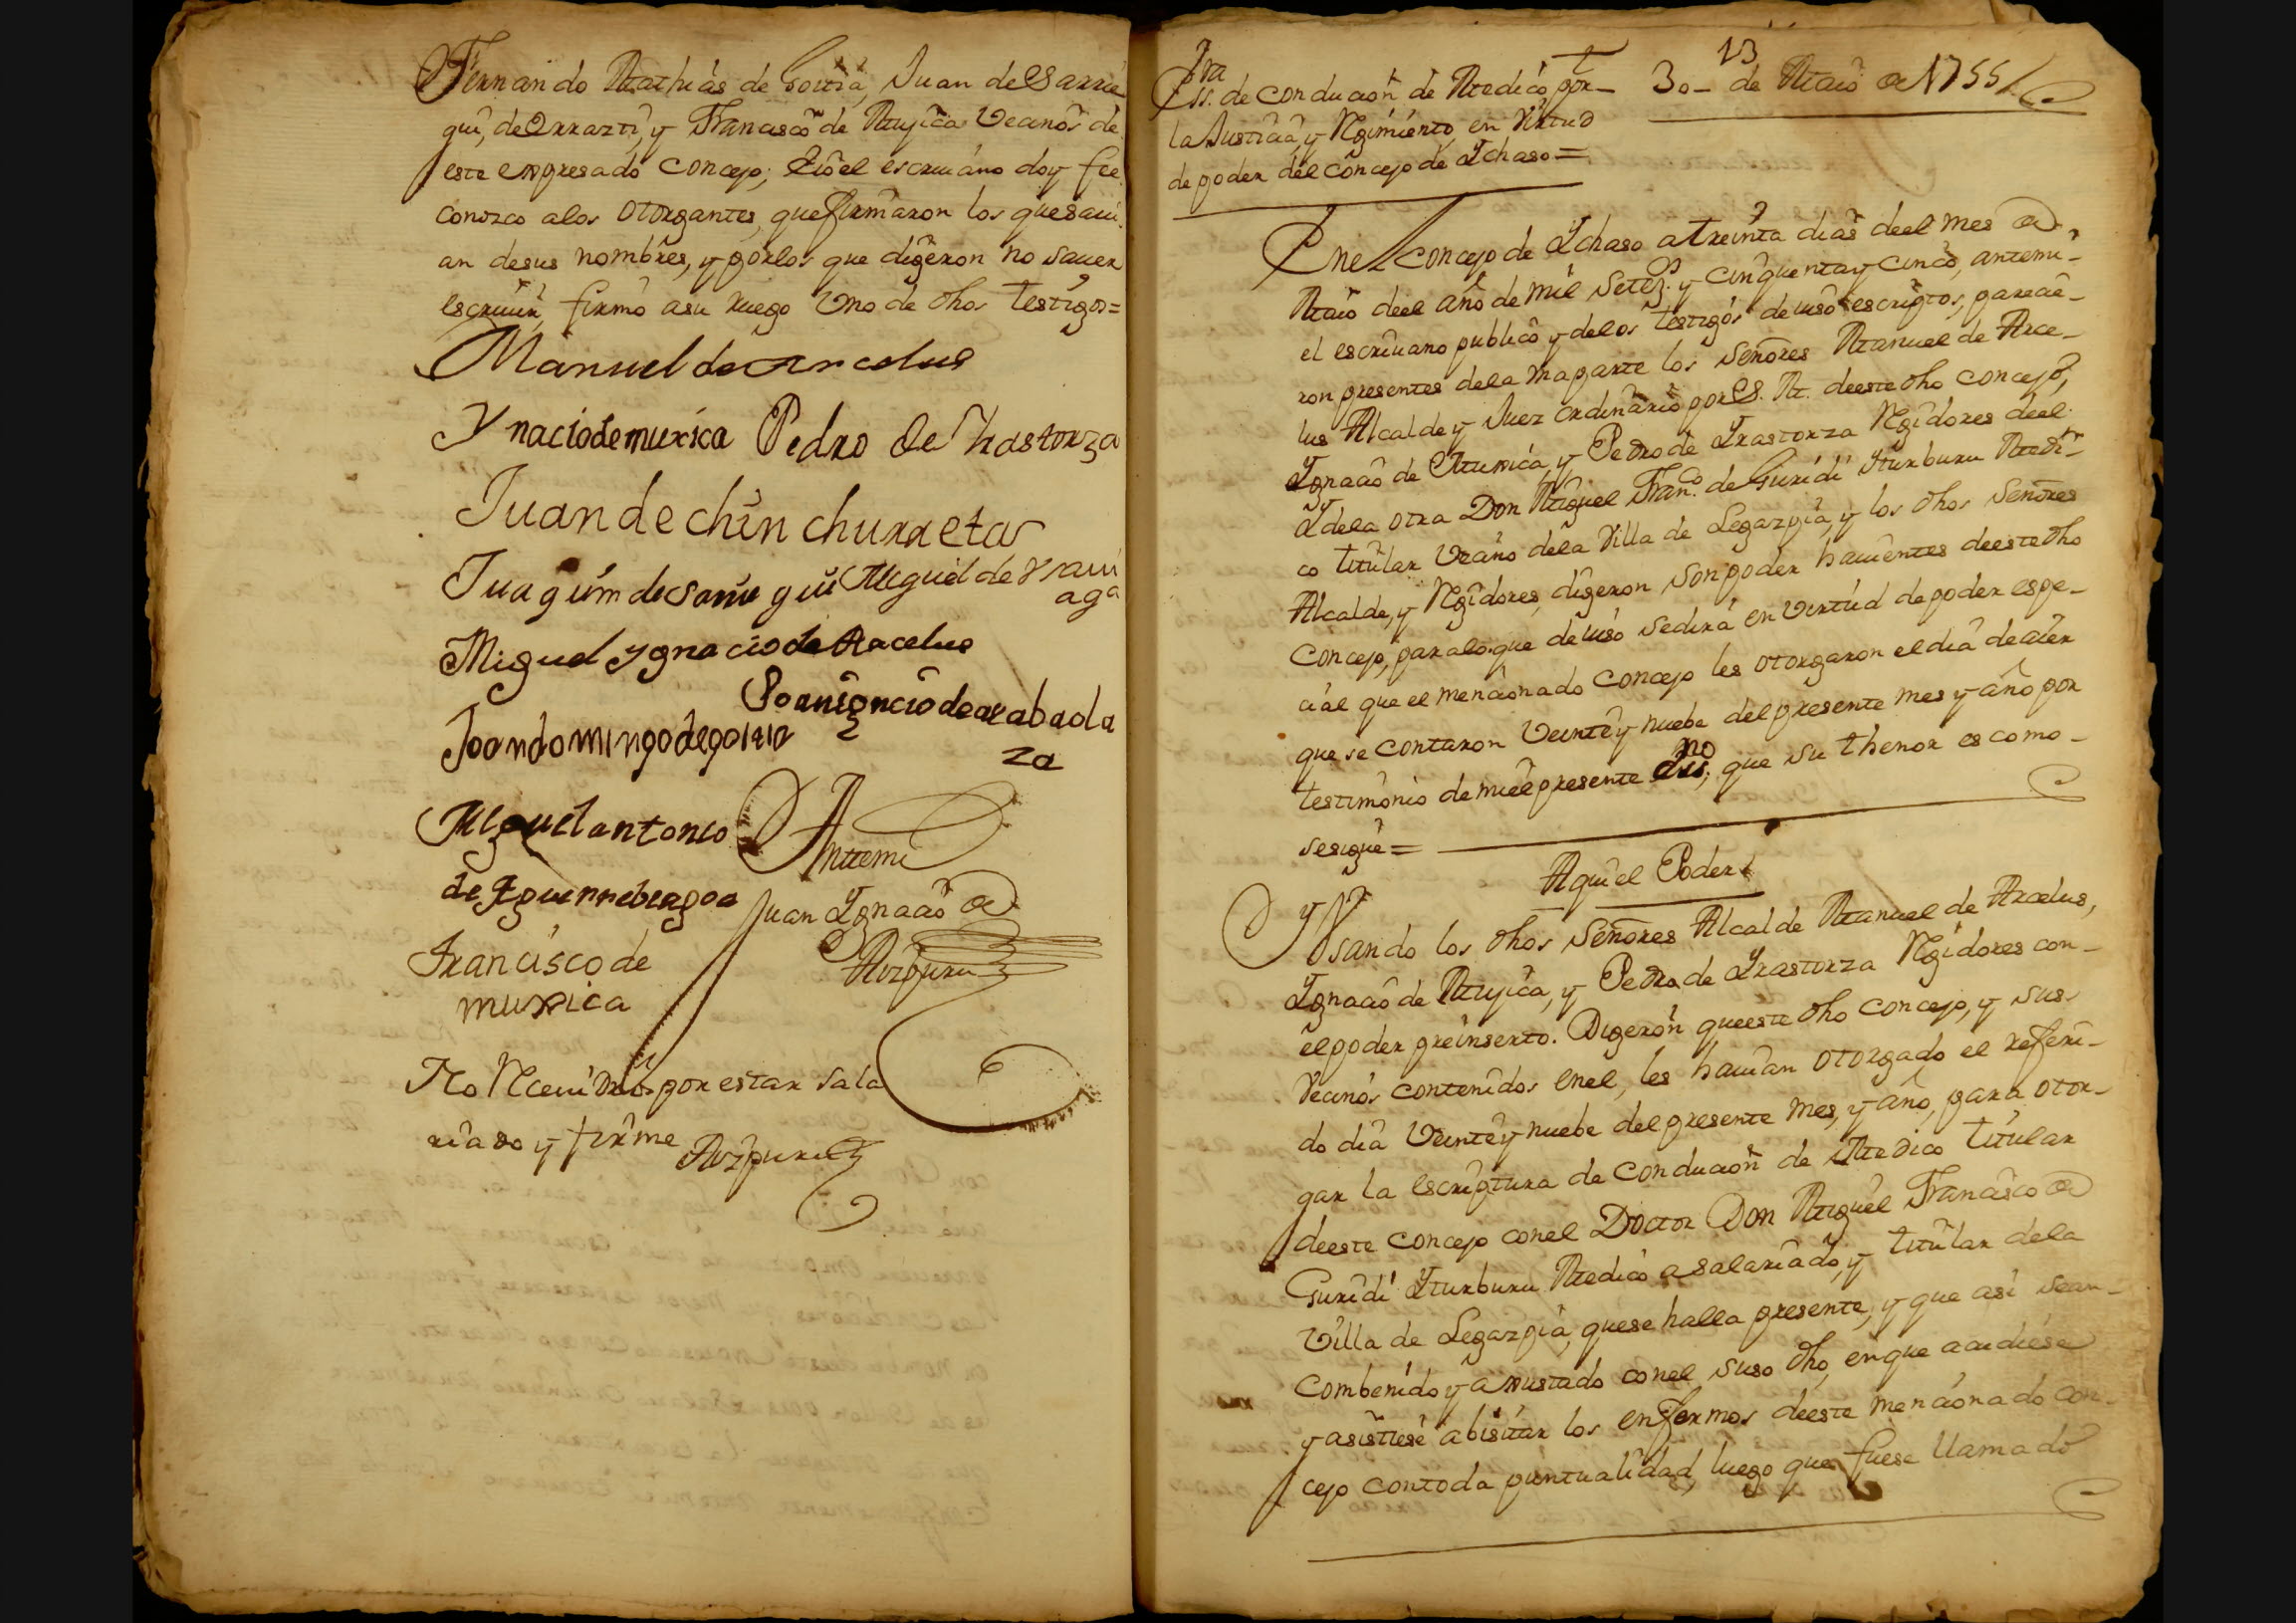 Fernando Mathias de Goitia, Juan de Sarrie
gui, de Orrazti, y Francisco de Mujica Vecinos de
este expresado Concejo; Eio el escriuano doy fee
conozco alos Otorgantes, que firmaron los que saui
an desus nombres, y por los que digeron no sauer
escriuir, firmó asu ruego Uno de dhos testigos=
Manuel de Arcelus
Ynacio de muxica Pedro de Yrastorza
Juan de chinchurreta
Juaquim de Sarriegui Miguel de Ysaui
aga
Miguel Ygnacio de Aracelus
Joanignacio de arabaola
za
Joandomingo de goitia
Miguel antonio
Antemi
de Eguenrebeagoa
Juan Ignacio de
Aozpuru
Francisco de
muxica
No Receui Dros por estar sala
riado y firme Aozpuru
13
Essra. de conducion de Medico por
30 de Maio de 1755
la Justicia, y Regimiento en Virtud
de poder del concejo de Ichaso=
Enel Concejo de Ichaso a treinta dias deel mes de
Maio deel año de mil Setez.s y cinquenta y cinco, antemi
el escriuano publico y delos testigos de iuso escriptos, parecie-
ron presentes dela una parte los Señores Manuel de Arce-
lus Alcalde y Juez ordinario por S. M. deeste dho concejo,
Ignacio de Muxica, y Pedro de Irastorza Regidores deel
I dela otra Don Miguel Fran.co de Guridi Iturburu Medi-
co titular Vecino dela Villa de Legazpia, y los dhos Señores
Alcalde, y Regidores, digeron son poder hauientes deeste dho
Concejo, para lo que de iuso sedirá en Virtud de poder espe-
cial que el mencionado Concejo les otorgaron el dia de aier
que se contaron Veinte y nuebe del presente mes y año por
testimonio de mi el presente essno, que su thenor es como
sesigue=
Aqui el Poder
Y Usando los dhos Señores Alcalde Manuel de Arcelus,
Ignacio de Mujica, y Pedro de Irastorza Regidores con-
el poder preinserto. Digeron queeste dho Concejo, y sus
Vecinos contenidos enel, les hauian otorgado el referi-
do dia Veinte y nuebe del presente mes, y año, para otor-
gar la escriptura de Conducion de Medico titular
deeste concejo conel Doctor Don Miguel Francisco de
Guridi Iturburu Medico asalariado, y titular dela
Villa de Legazpia, quese halla presente, y que asi sean
combenido y axustado conel suso dho, enque acudiese
y asistiese abisitar los enfermos deeste mencionado con
cejo contoda puntualidad, luego que fuese llamado